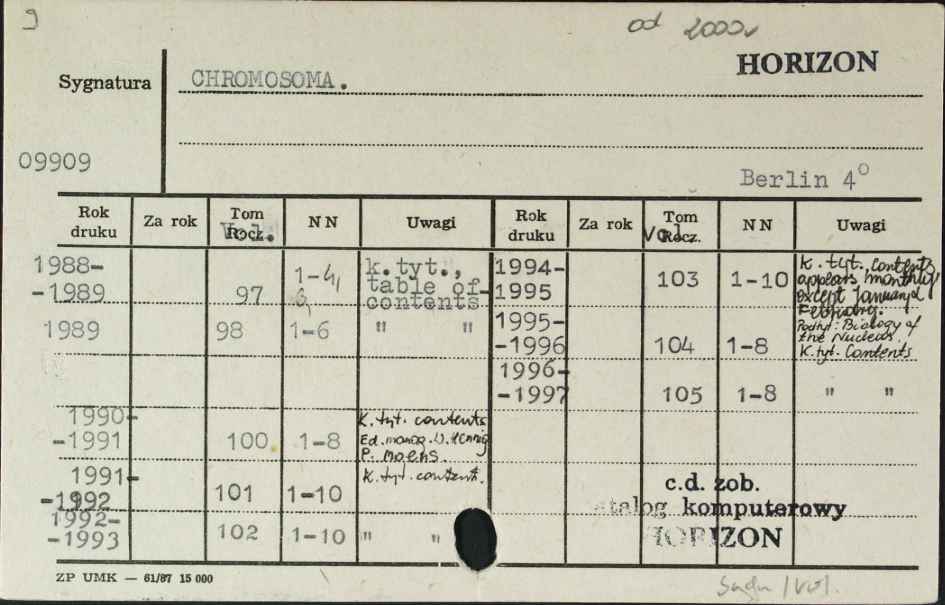 9
od 2000
HORIZON
Sygnatura
CHROMOSOMA.
09909
Berlin 4°
Rok druku Za rok Tom Rocz. Vol. NN Uwagi Rok druku Za rok Tom Rocz. Vol. NN Uwagi
1988-
-1989 97 1-4, 6, k.tyt., table of contents
1989 98 1-6 " "
1990-
-1991 100 1-8 K. tyt. contents
Ed. manag. W. Hennig
P. Moens.
1991-
-1992 101 1-10 K. tyt. content.
1992-
-1993 102 1-10 " "
1994-
1995 103 1-10 K. tyt., contents
appears monthly
except January &
February.
1995-
-1996 104 1-8 Podtyt: Biology of
the Nucleus
K. tyt. Contents
1996-
-1997 105 1-8 " "
c.d. zob.
talog komputerowy
HORIZON
ZP UMK — 61/87 15 000